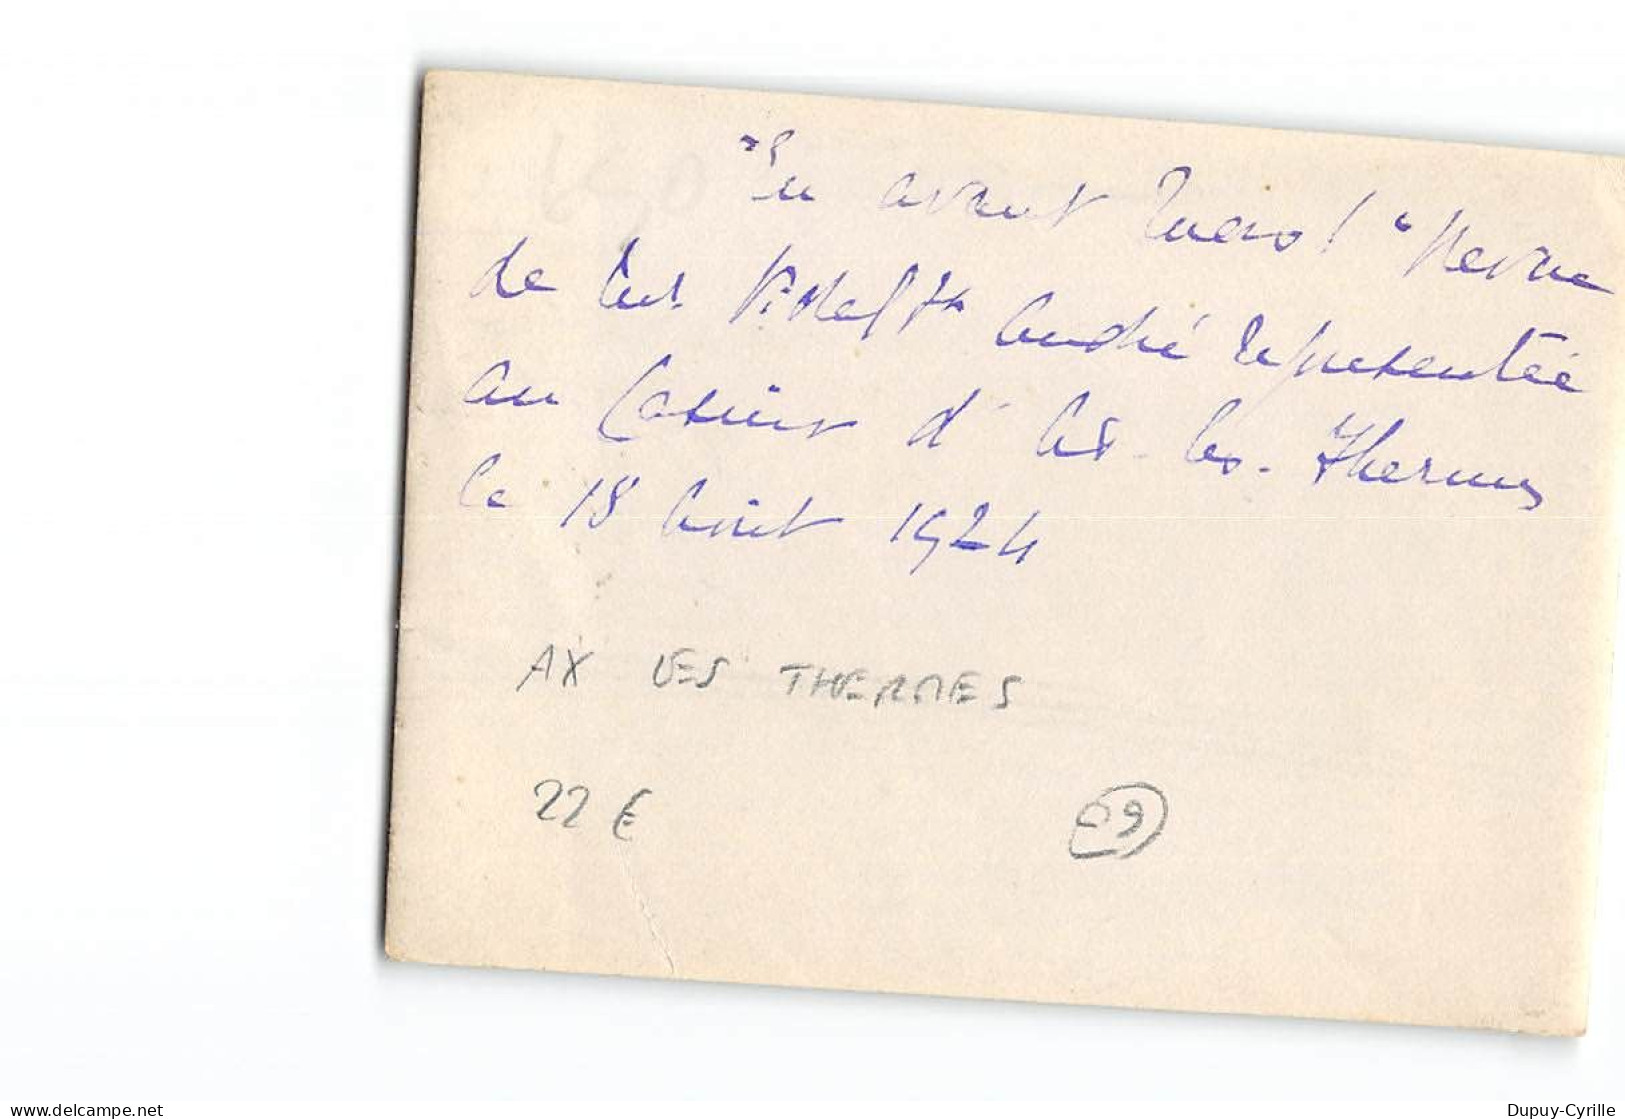 "En avant  ! " Revue
de  Vidal et André représentée
au Casino d'Ax-les-Thermes
le 18 Août 1924
AX LES THERMES
22 €
09
www.delcampe.net
Dupuy-Cyrille